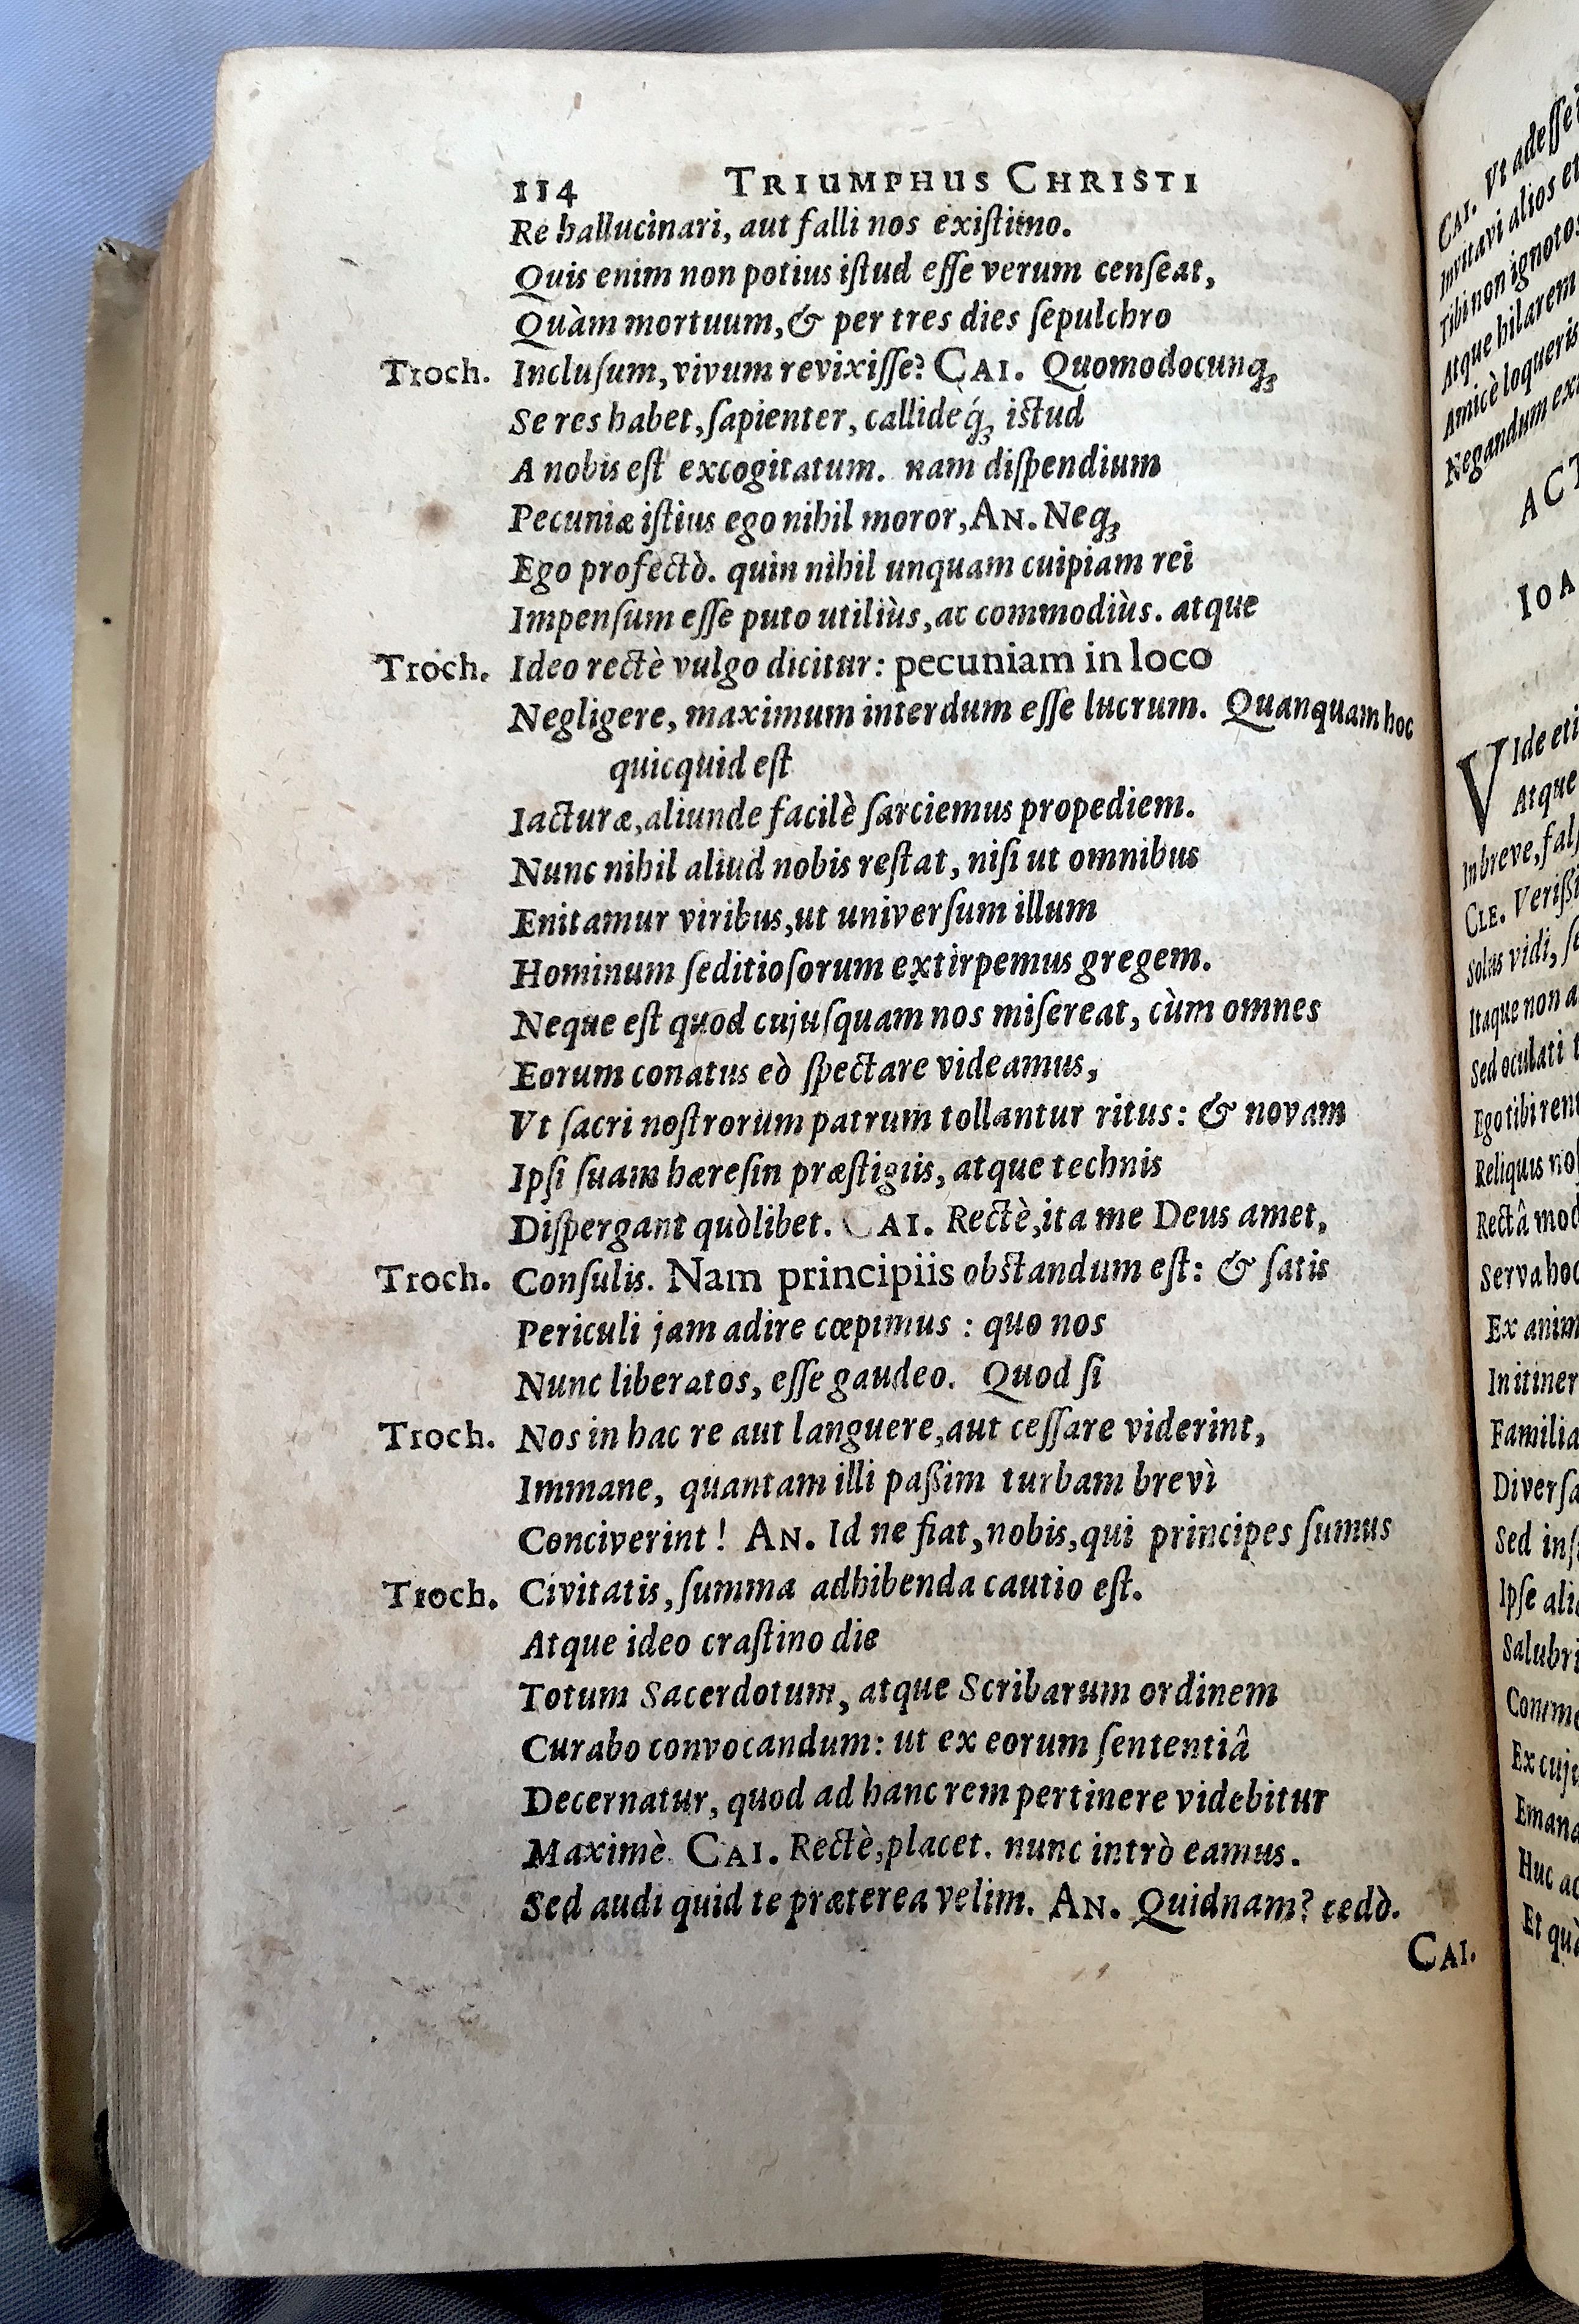 114 TRIUMPHUS CHRISTI
Re hallucinari, aut falli nos exiſtimo.
Quis enim non potius iſtud eſſe verum cenſeat,
Quàm mortuum, & per tres dies ſepulchro
Troch. Incluſum, vivum revixiſſe? CAI. Quomodocunq́ꝫ
Se res habet, ſapienter, callideq́ꝫ iſtud
A nobis eſt excogitatum. nam diſpendium
Pecuniæ iſtius ego nihil moror, AN. Neqꝫ
Ego profectò. quin nihil unquam cuipiam rei
Impenſum eſſe puto utiliùs, ac commodiùs. atque
Troch. Ideo rectè vulgo dicitur: pecuniam in loco
Negligere, maximum interdum eſſe lucrum. Quanquam hoc
quicquid eſt
Iacturæ, aliunde facilè ſarciemus propediem.
Nunc nihil aliud nobis reſtat, niſi ut omnibus
Enitamur viribus, ut univerſum illum
Hominum ſeditioſorum extirpemus gregem.
Neque eſt quod cujuſquam nos miſereat, cùm omnes
Eorum conatus eò ſpectare videamus,
Vt ſacri noſtrorum patrum tollantur ritus: & novam
Ipſi ſuam hæreſin præſtigiis, atque technis
Diſpergant quòlibet. CAI. Rectè, ita me Deus amet,
Troch. Conſulis. Nam principiis obſtandum eſt: & ſatis
Periculi jam adire cœpimus: quo nos
Nunc liberatos, eſſe gaudeo. Quod ſi
Troch. Nos in hac re aut languere, aut ceſſare viderint,
Immane, quantam illi paßim turbam brevì
Conciverint! AN. Id ne fiat, nobis, qui principes ſumus
Troch. Civitatis, ſumma adhibenda cautio eſt.
Atque ideo craſtino die
Totum Sacerdotum, atque Scribarum ordinem
Curabo convocandum: ut ex eorum ſententiâ
Decernatur, quod ad hanc rem pertinere videbitur
Maximè. CAI. Rectè, placet. nunc intrò eamus.
Sed audi quid te præterea velim. AN. Quidnam? cedò.
CAI.
CAI. Vt adeſſe
Invitavi alios
Tibi non ignotos
Atque hilarem
Amicè loqueris
Negandum
VIde
Atque
In breve,
CLE.
Solus vidi,
Itaque non
Sed oculati
Ego tibi
Reliquis
Rectâ
Serva hoc
Ex
In
Sed
Ipſe
Huc
Et